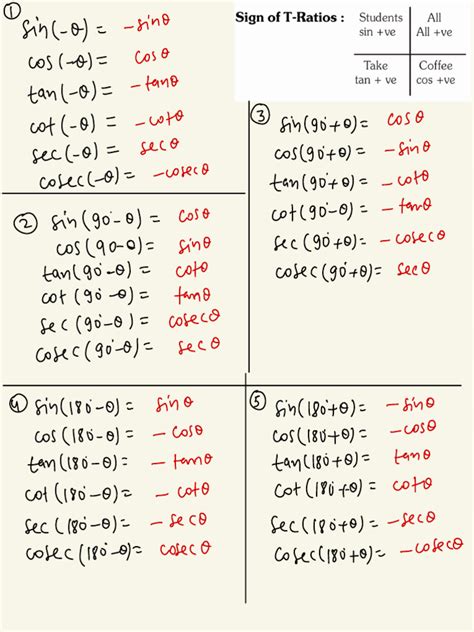 ①
sin(-θ) = -sinθ
cos(-θ) = cosθ
tan(-θ) = -tanθ
cot(-θ) = -cotθ
sec(-θ) = secθ
cosec(-θ) = -cosecθ
Sign of T-Ratios :
Students
sin +ve
All
All +ve
Take
tan + ve
Coffee
cos +ve
② sin(90°-θ) = cosθ
cos(90-θ) = sinθ
tan(90°-θ) = cotθ
cot(90°-θ) = tanθ
sec(90°-θ) = cosecθ
cosec(90°-θ) = secθ
③ sin(90°+θ) = cosθ
cos(90°+θ) = -sinθ
tan(90°+θ) = -cotθ
cot(90°+θ) = -tanθ
sec(90°+θ) = -cosecθ
cosec(90°+θ) = secθ
④ sin(180°-θ) = sinθ
cos(180°-θ) = -cosθ
tan(180°-θ) = -tanθ
cot(180°-θ) = -cotθ
sec(180°-θ) = -secθ
cosec(180°-θ) = cosecθ
⑤ sin(180°+θ) = -sinθ
cos(180°+θ) = -cosθ
tan(180°+θ) = tanθ
cot(180°+θ) = cotθ
sec(180°+θ) = -secθ
cosec(180°+θ) = -cosecθ